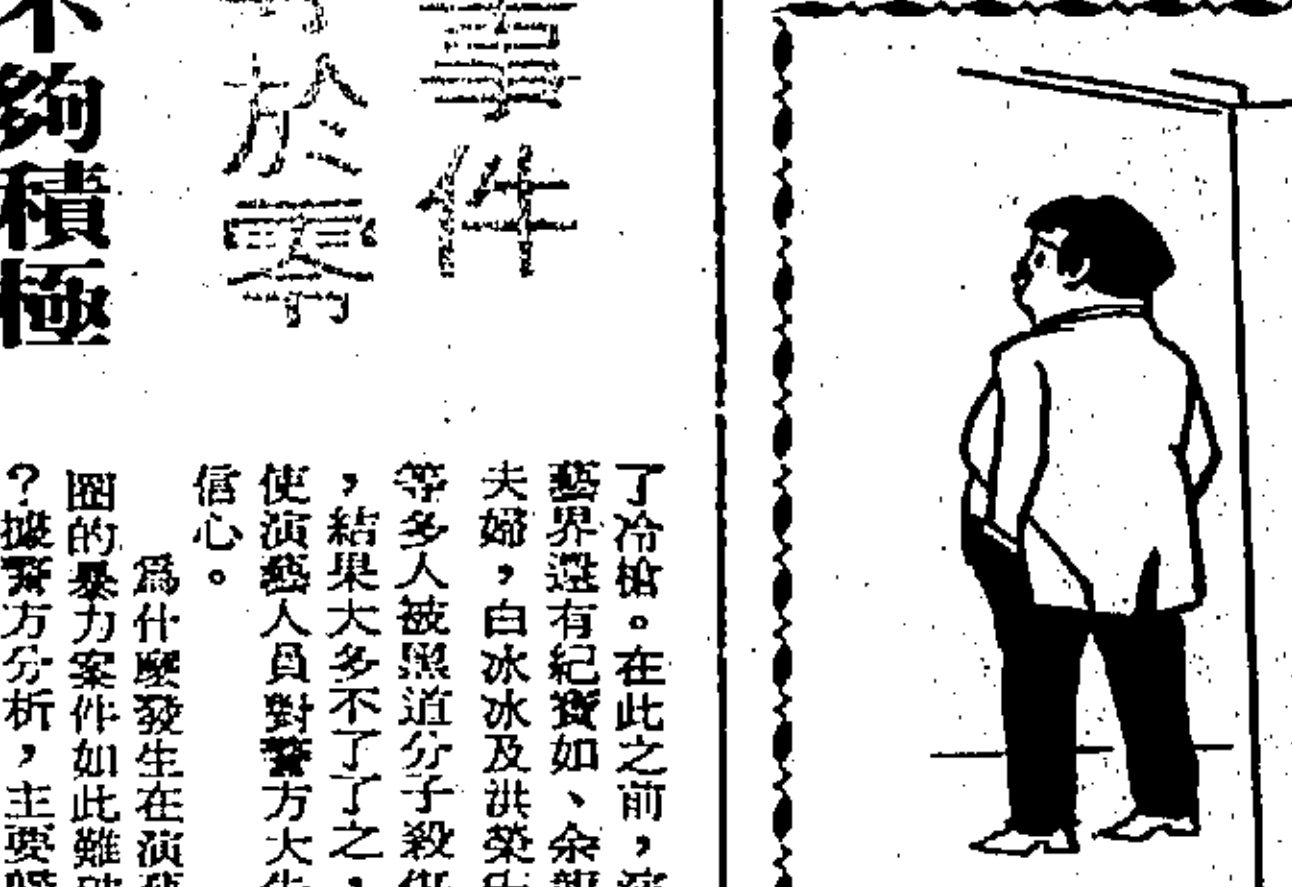 事件
於零
不夠積極
了冷槍。在此之前，演
藝界還有紀寶如、余龍
夫婦，白冰冰及洪榮宏
等多人被黑道分子殺傷
，結果大多不了了之，
使演藝人員對警方大失
信心。
為什麼發生在演藝
圈的暴力案件如此難破
？據警方分析，主要